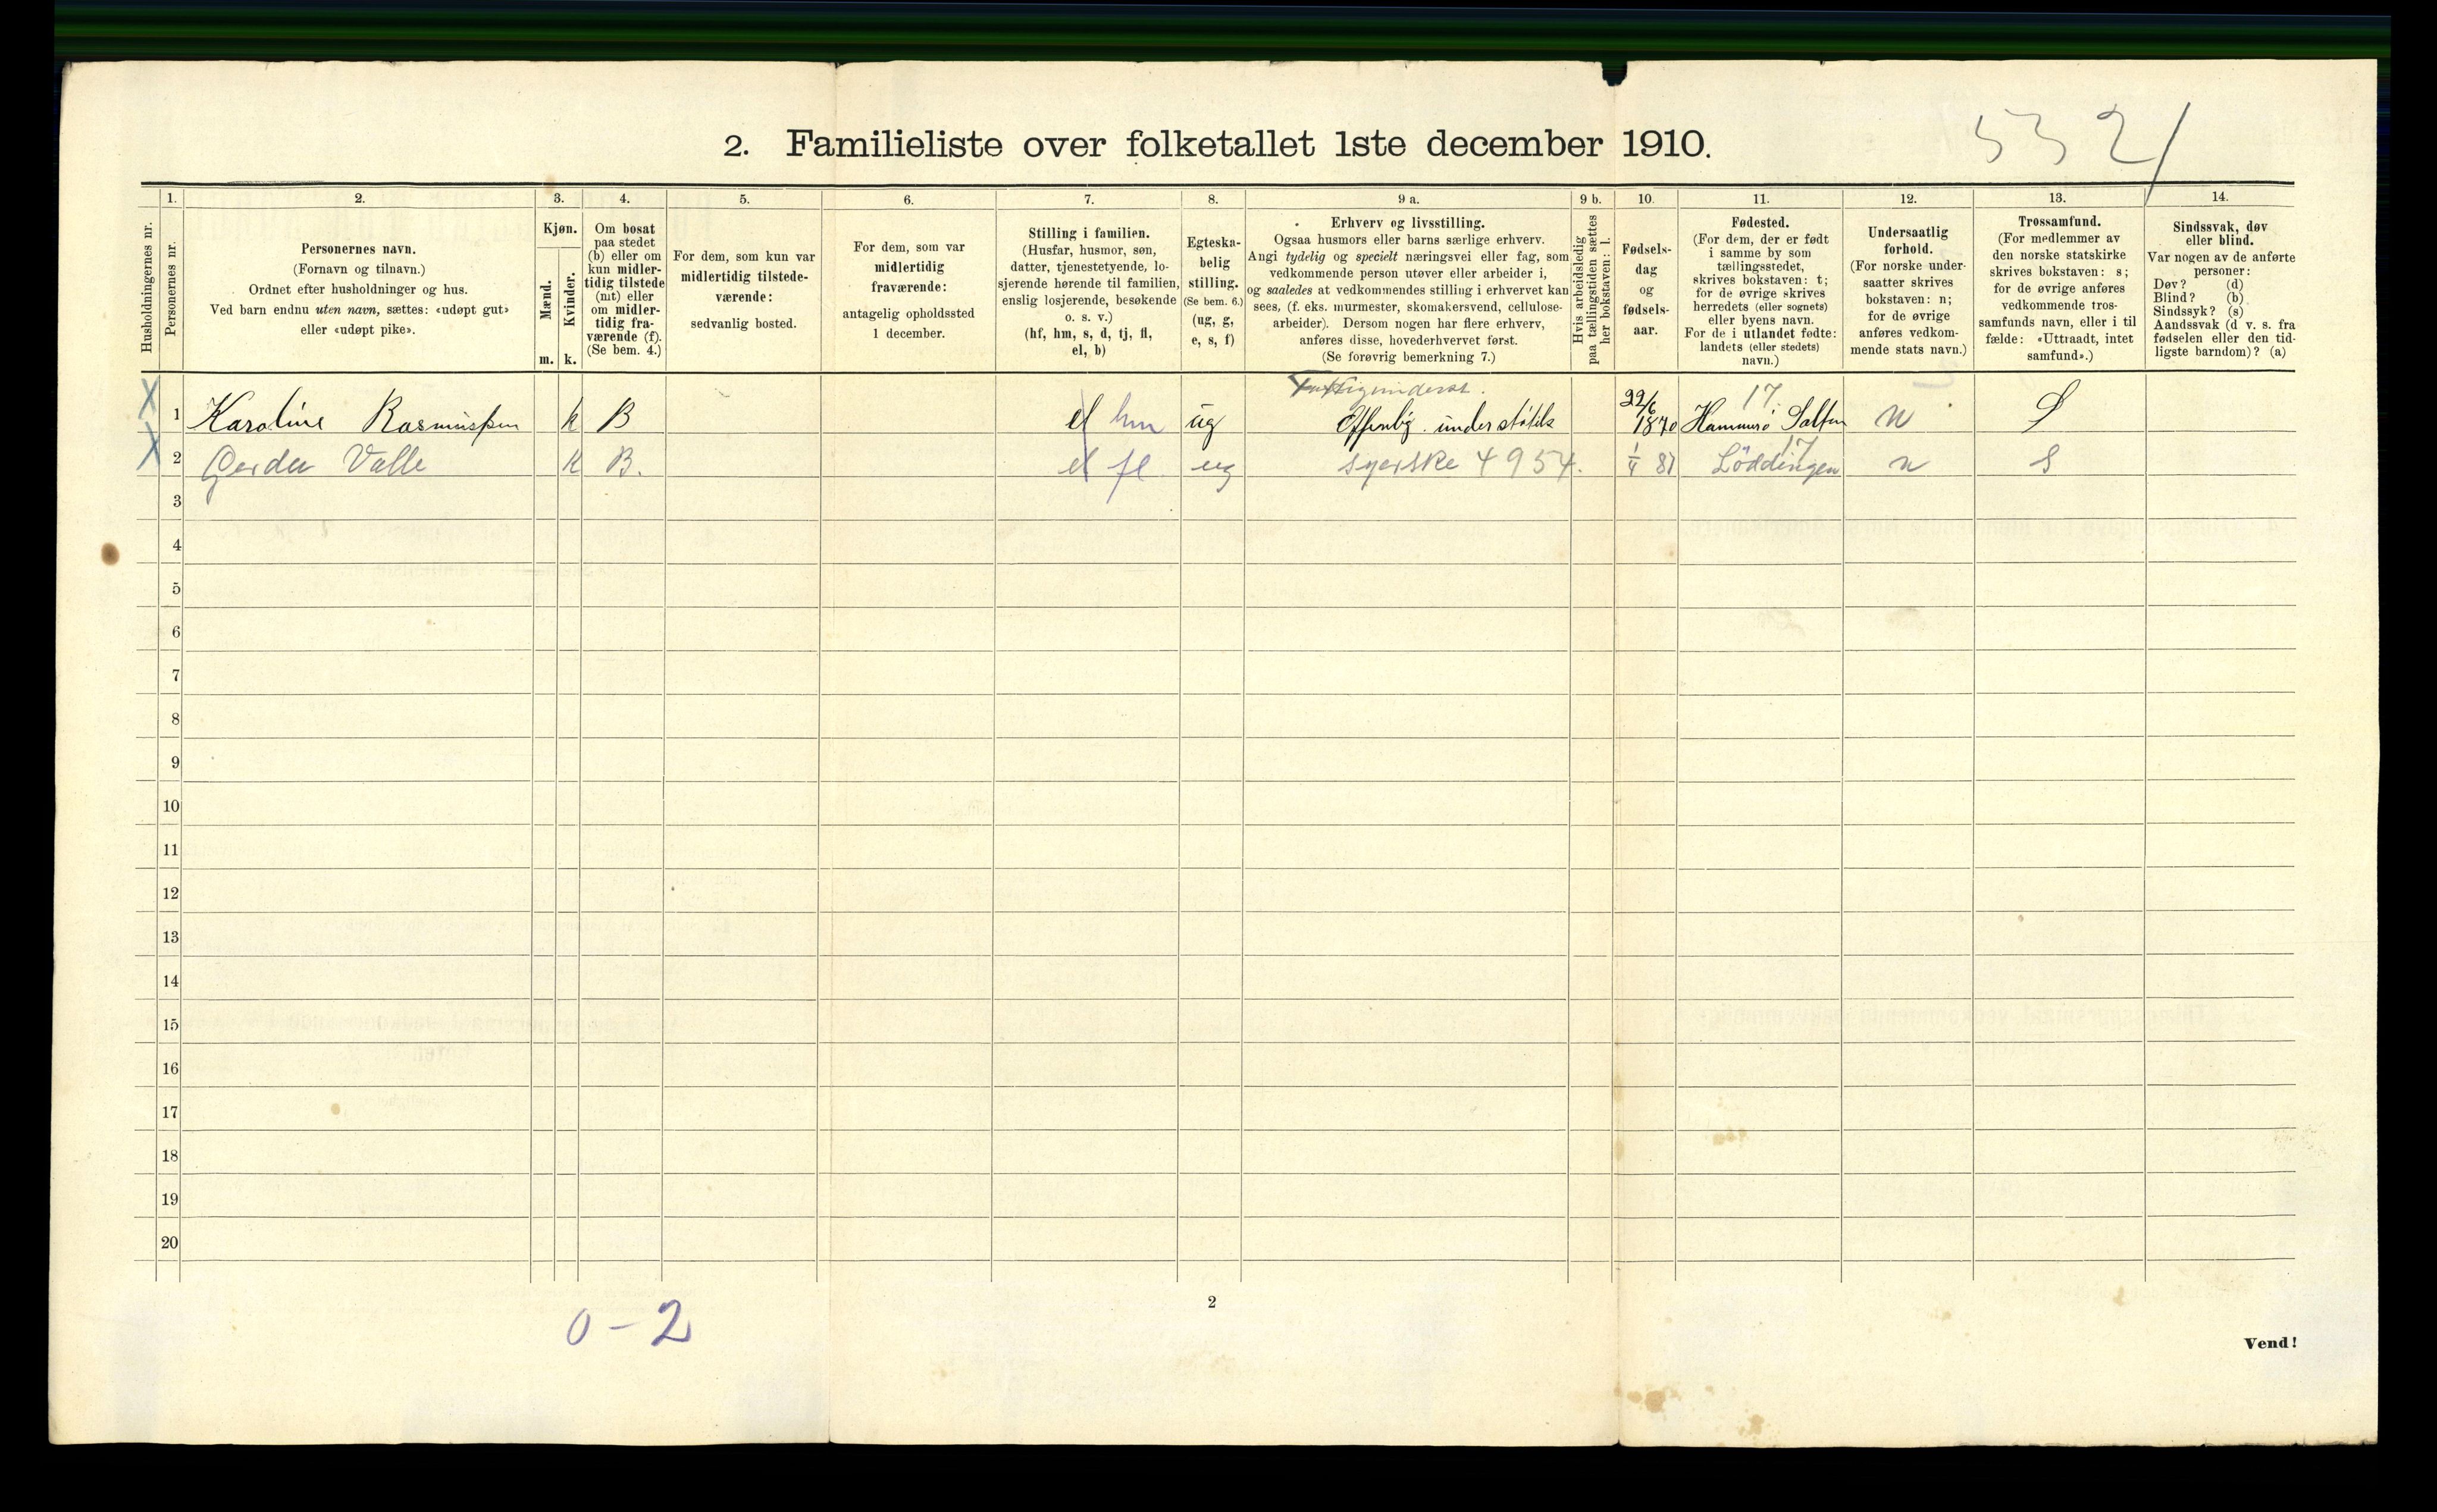 5321
2. Familieliste over folketallet 1ste december 1910.
Husholdningernes nr.
1.
Personernes nr.
2.
Personernes navn.
(Fornavn og tilnavn.)
Ordnet efter husholdninger og hus.
Ved barn endnu uten navn, sættes: «udøpt gut»
eller «udøpt pike».
3.
Kjøn.
Mænd.
Kvinder.
m. k.
4.
Om bosat
paa stedet
(b) eller om
kun midler-
tidig tilstede
(mt) eller
om midler-
tidig fra-
værende (f).
(Se bem. 4.)
5.
For dem, som kun var
midlertidig tilstede-
værende:
sedvanlig bosted.
6.
For dem, som var
midlertidig
fraværende:
antagelig opholdssted
1 december.
7.
Stilling i familien.
(Husfar, husmor, søn,
datter, tjenestetyende, lo-
sjerende hørende til familien,
enslig losjerende, besøkende
o. s. v.)
(hf, hm, s, d, tj, fl,
el, b)
8.
Egteska-
belig
stilling.
(Se bem. 6.)
(ug, g,
e, s, f)
9 a.
Erhverv og livsstilling.
Ogsaa husmors eller barns særlige erhverv.
Angi tydelig og specielt næringsvei eller fag, som
vedkommende person utøver eller arbeider i,
og saaledes at vedkommendes stilling i erhvervet kan
sees, (f. eks. murmester, skomakersvend, cellulose-
arbeider). Dersom nogen har flere erhverv,
anføres disse, hovederhvervet først.
(Se forøvrig bemerkning 7.)
9 b.
Hvis arbeidsledig
paa tællingstiden sættes
her bokstaven: l.
10.
Fødsels-
dag
og
fødsels-
aar.
11.
Fødested.
(For dem, der er født
i samme by som
tællingsstedet,
skrives bokstaven: t;
for de øvrige skrives
herredets (eller sognets)
eller byens navn.
For de i utlandet fødte:
landets (eller stedets)
navn.)
12.
Undersaatlig
forhold.
(For norske under-
saatter skrives
bokstaven: n;
for de øvrige
anføres vedkom-
mende stats navn.)
13.
Trossamfund.
(For medlemmer av
den norske statskirke
skrives bokstaven: s;
for de øvrige anføres
vedkommende tros-
samfunds navn, eller i til
fælde: «Uttraadt, intet
samfund».)
14.
Sindssvak, døv
eller blind.
Var nogen av de anførte
personer:
Døv? (d)
Blind? (b)
Sindssyk? (s)
Aandssvak (d v. s. fra
fødselen eller den tid-
ligste barndom)? (a)
Fattigunderst. 17.
X 1 Karoline Rasmussen k B el hm ug Offenlig understøtels 22/6 1870 Hammerø Salten n S
17
X 2 Gerda Valle K B. el fl ug syerske 4954. 1/4 87 Löddingen n S
3
4
5
6
7
8
9
10
11
12
13
14
15
16
17
18
19
20
0-2
2
Vend!